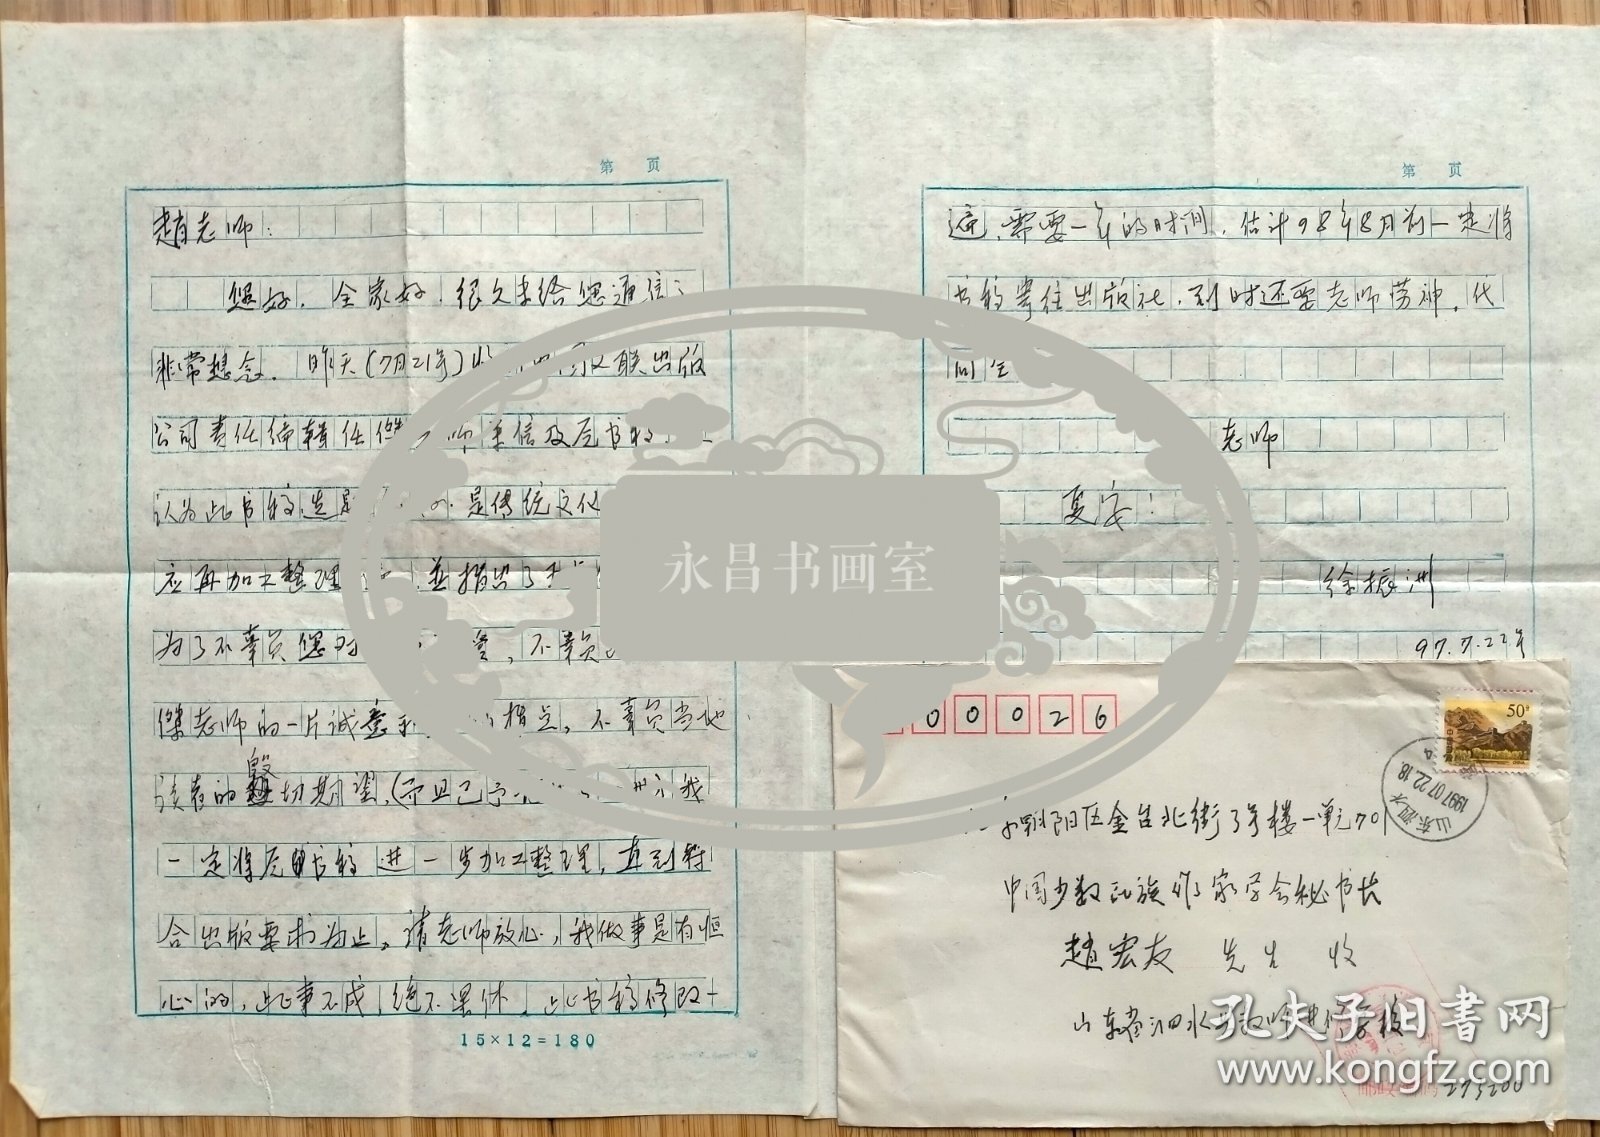 第 页
赵老师：
您好，全家好，很久未给您通信，
非常想念。昨天（7月21号）收 联出版
公司责任编辑任 师来信及原书稿
认为此书稿选 是传统文化
应再加工整理 并指出了
为了不辜负您对 望，不辜负
杰老师的一片诚意和 指点，不辜负当地
读者的殷切期望，（而且已予 我
一定将原书稿进一步加工整理，直到符
合出版要求为止。请老师放心，我做事是有恒
心的，此事不成，绝不罢休。此书稿修改一
15×12=180
第 页
遍，需要一年的时间，估计98年8月前一定将
书稿寄往出版社，到时还要老师劳神。代
问全
老师
夏安：
徐振洲
97.7.22号
00026
50分
山东泗水
1997.07.22.18
京朝阳区金台北街3号楼一单元701
中国少数民族作家学会秘书长
赵宏友 先生 收
山东省泗水县教师进修学校
273200
永昌书画室
孔夫子旧书网
www.kongfz.com